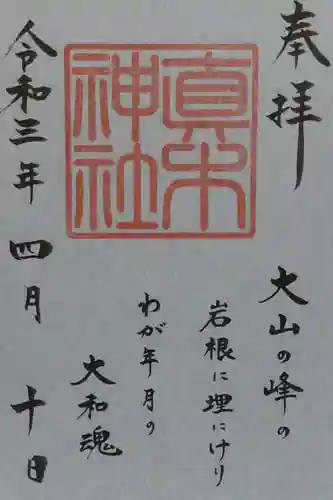 奉拝
真中
神社
大山の峰の
岩根に埋にけり
わが年月の
大和魂
令和三年四月十日